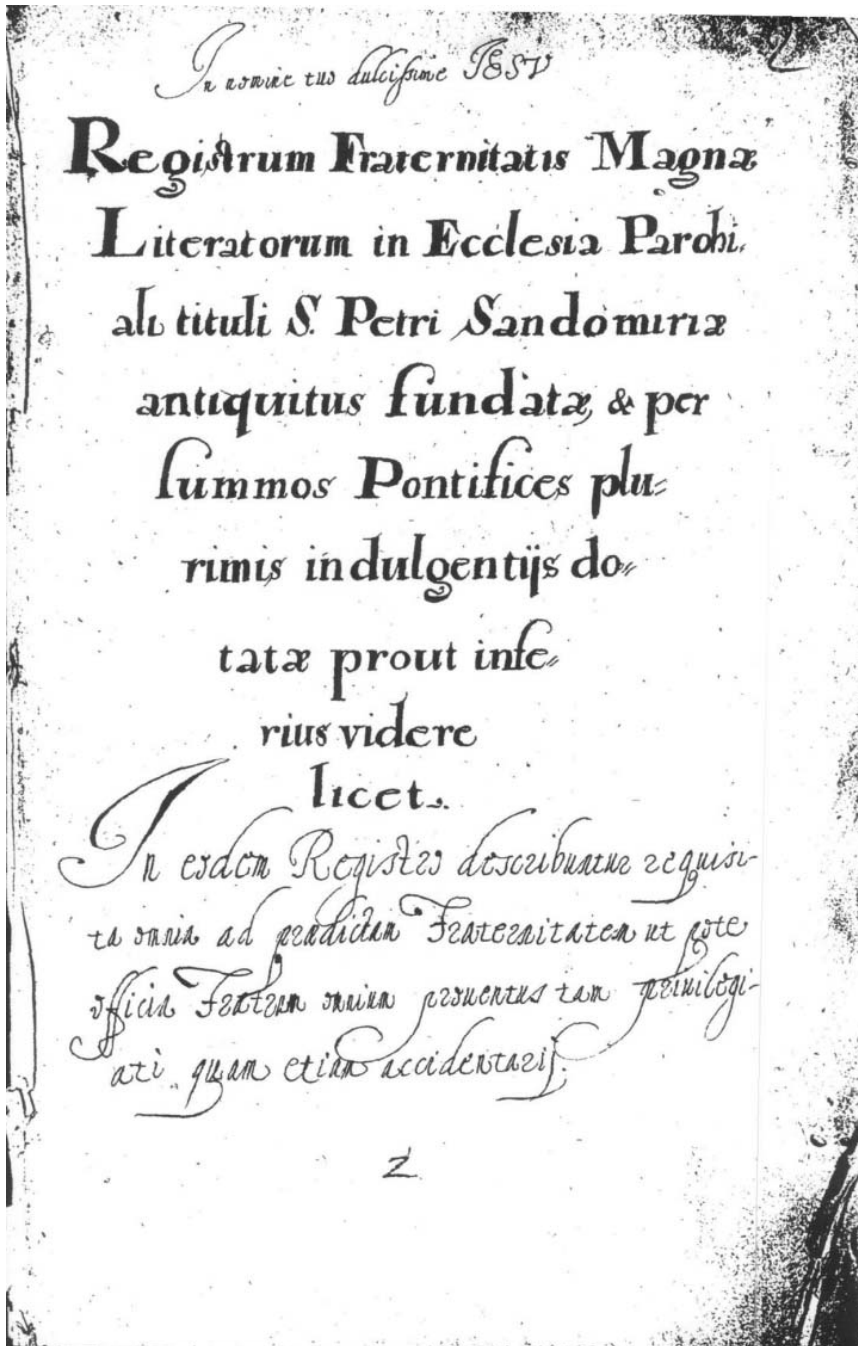 2
In nomine tuo dulcissime IESV
Registrum Fraternitatis Magnæ
Literatorum in Ecclesia Parohi.
ali tituli S. Petri Sandomiriæ
antiquitus fundatæ, & per
summos Pontifices plu=
rimis indulgentijs do=
tatæ prout infe=
rius videre
licet.
In eodem Registro describuntur requisi-
ta omnia ad prædictam Fraternitatem ut pote
officia Fratrum omnium prouentus tam priuilegi-
ati quam etiam accidentarij.
2